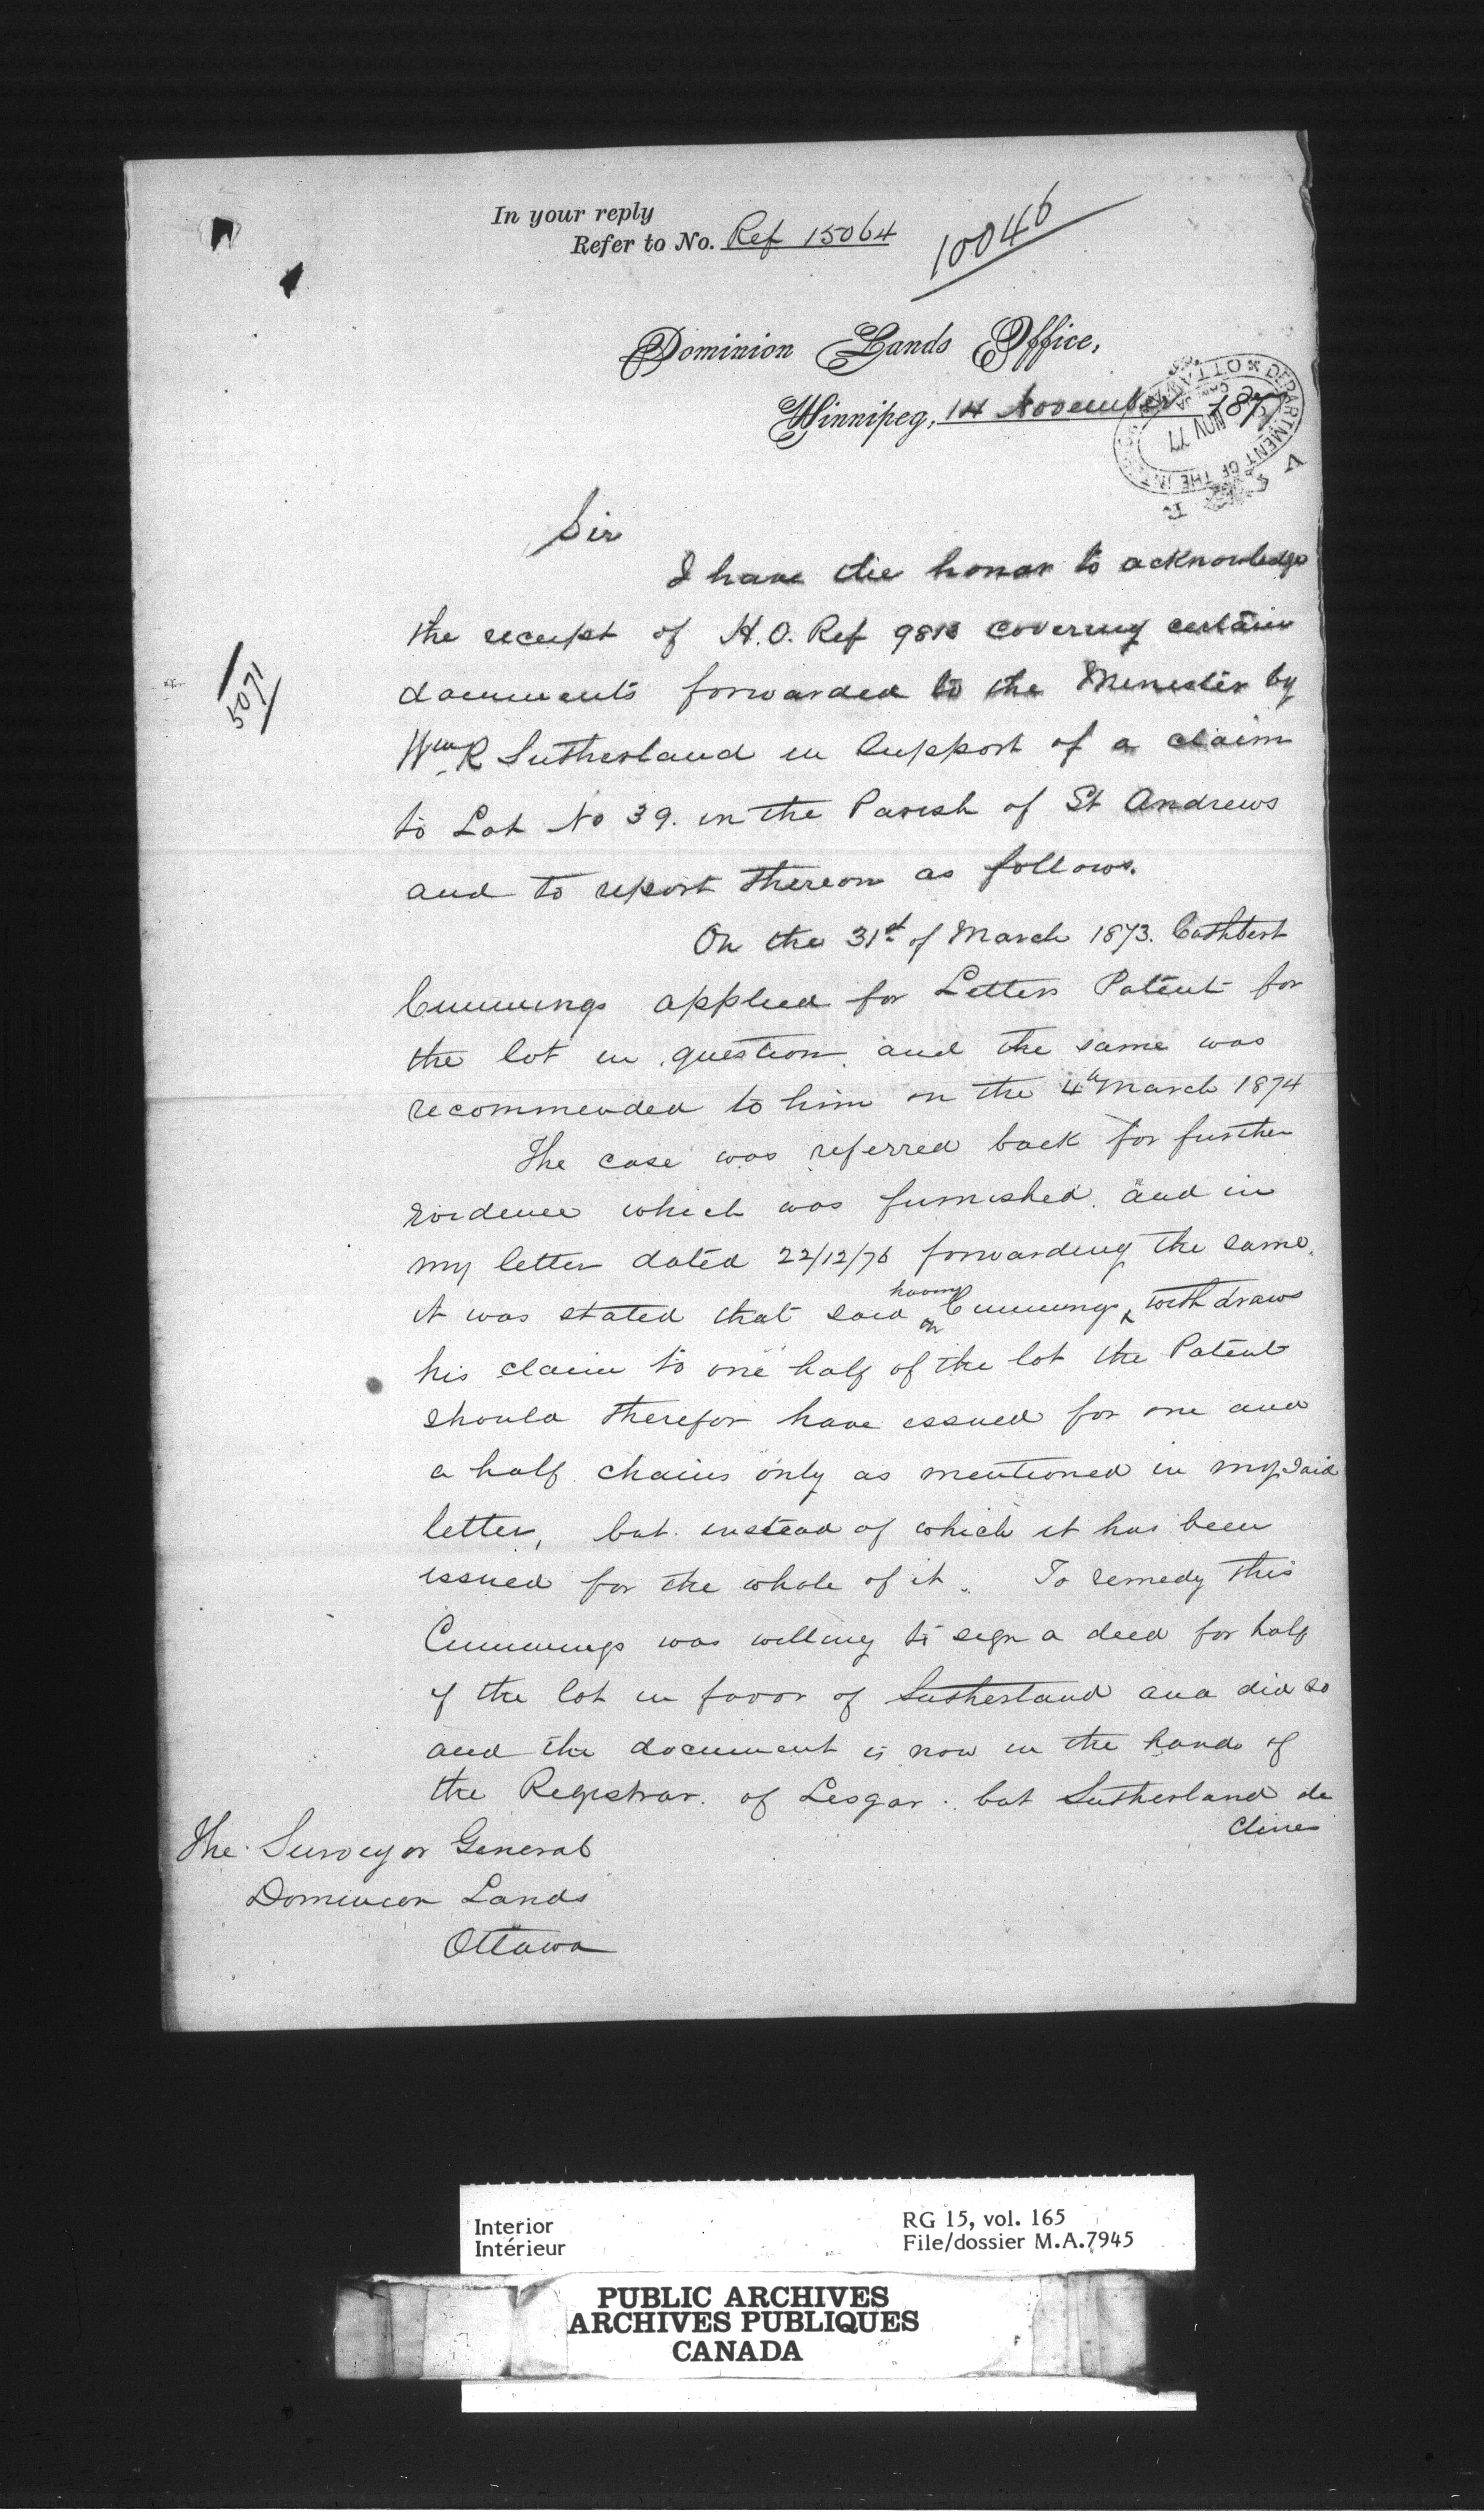 In your reply
Refer to No. Ref 15064
10046
Dominion Lands Office,
Winnipeg, 14 November 1877
DEPARTMENT OF THE
OTTAWA
NOV 77
Sir
I have the honor to acknowledge
the receipt of H.O. Ref covering certain
5071
documents forwarded to the Minester by
Wm R Sutherland in Support of a claim
to Lot No 39. in the Parish of St Andrews
and to report thereon as follows.
On the 31st of March 1873. Cuthbert
Cummings applied for Letters Patent for
the lot in question and the same was
recommended to him on the 4th March 1874
The case was referred back for further
evidence which was furnished and in
my letter dated 22/12/76 forwarding the same.
having
it was stated that said Cummings withdraws
his claim to one half of the lot the Patent
should therefor have issued for one and
a half chains only as mentioned in my said
letter, but instead of which it has been
issued for the whole of it. To remedy this
Cummings was willing to sign a deed for half
of the lot in favor of Sutherland and did so
and the document is now in the hands of
the Registrar of Lisgar. but Sutherland de
clines
The Surveyor General
Dominion Lands
Ottawa
Interior
Intérieur
RG 15, vol. 165
File/dossier M.A.7945
PUBLIC ARCHIVES
ARCHIVES PUBLIQUES
CANADA